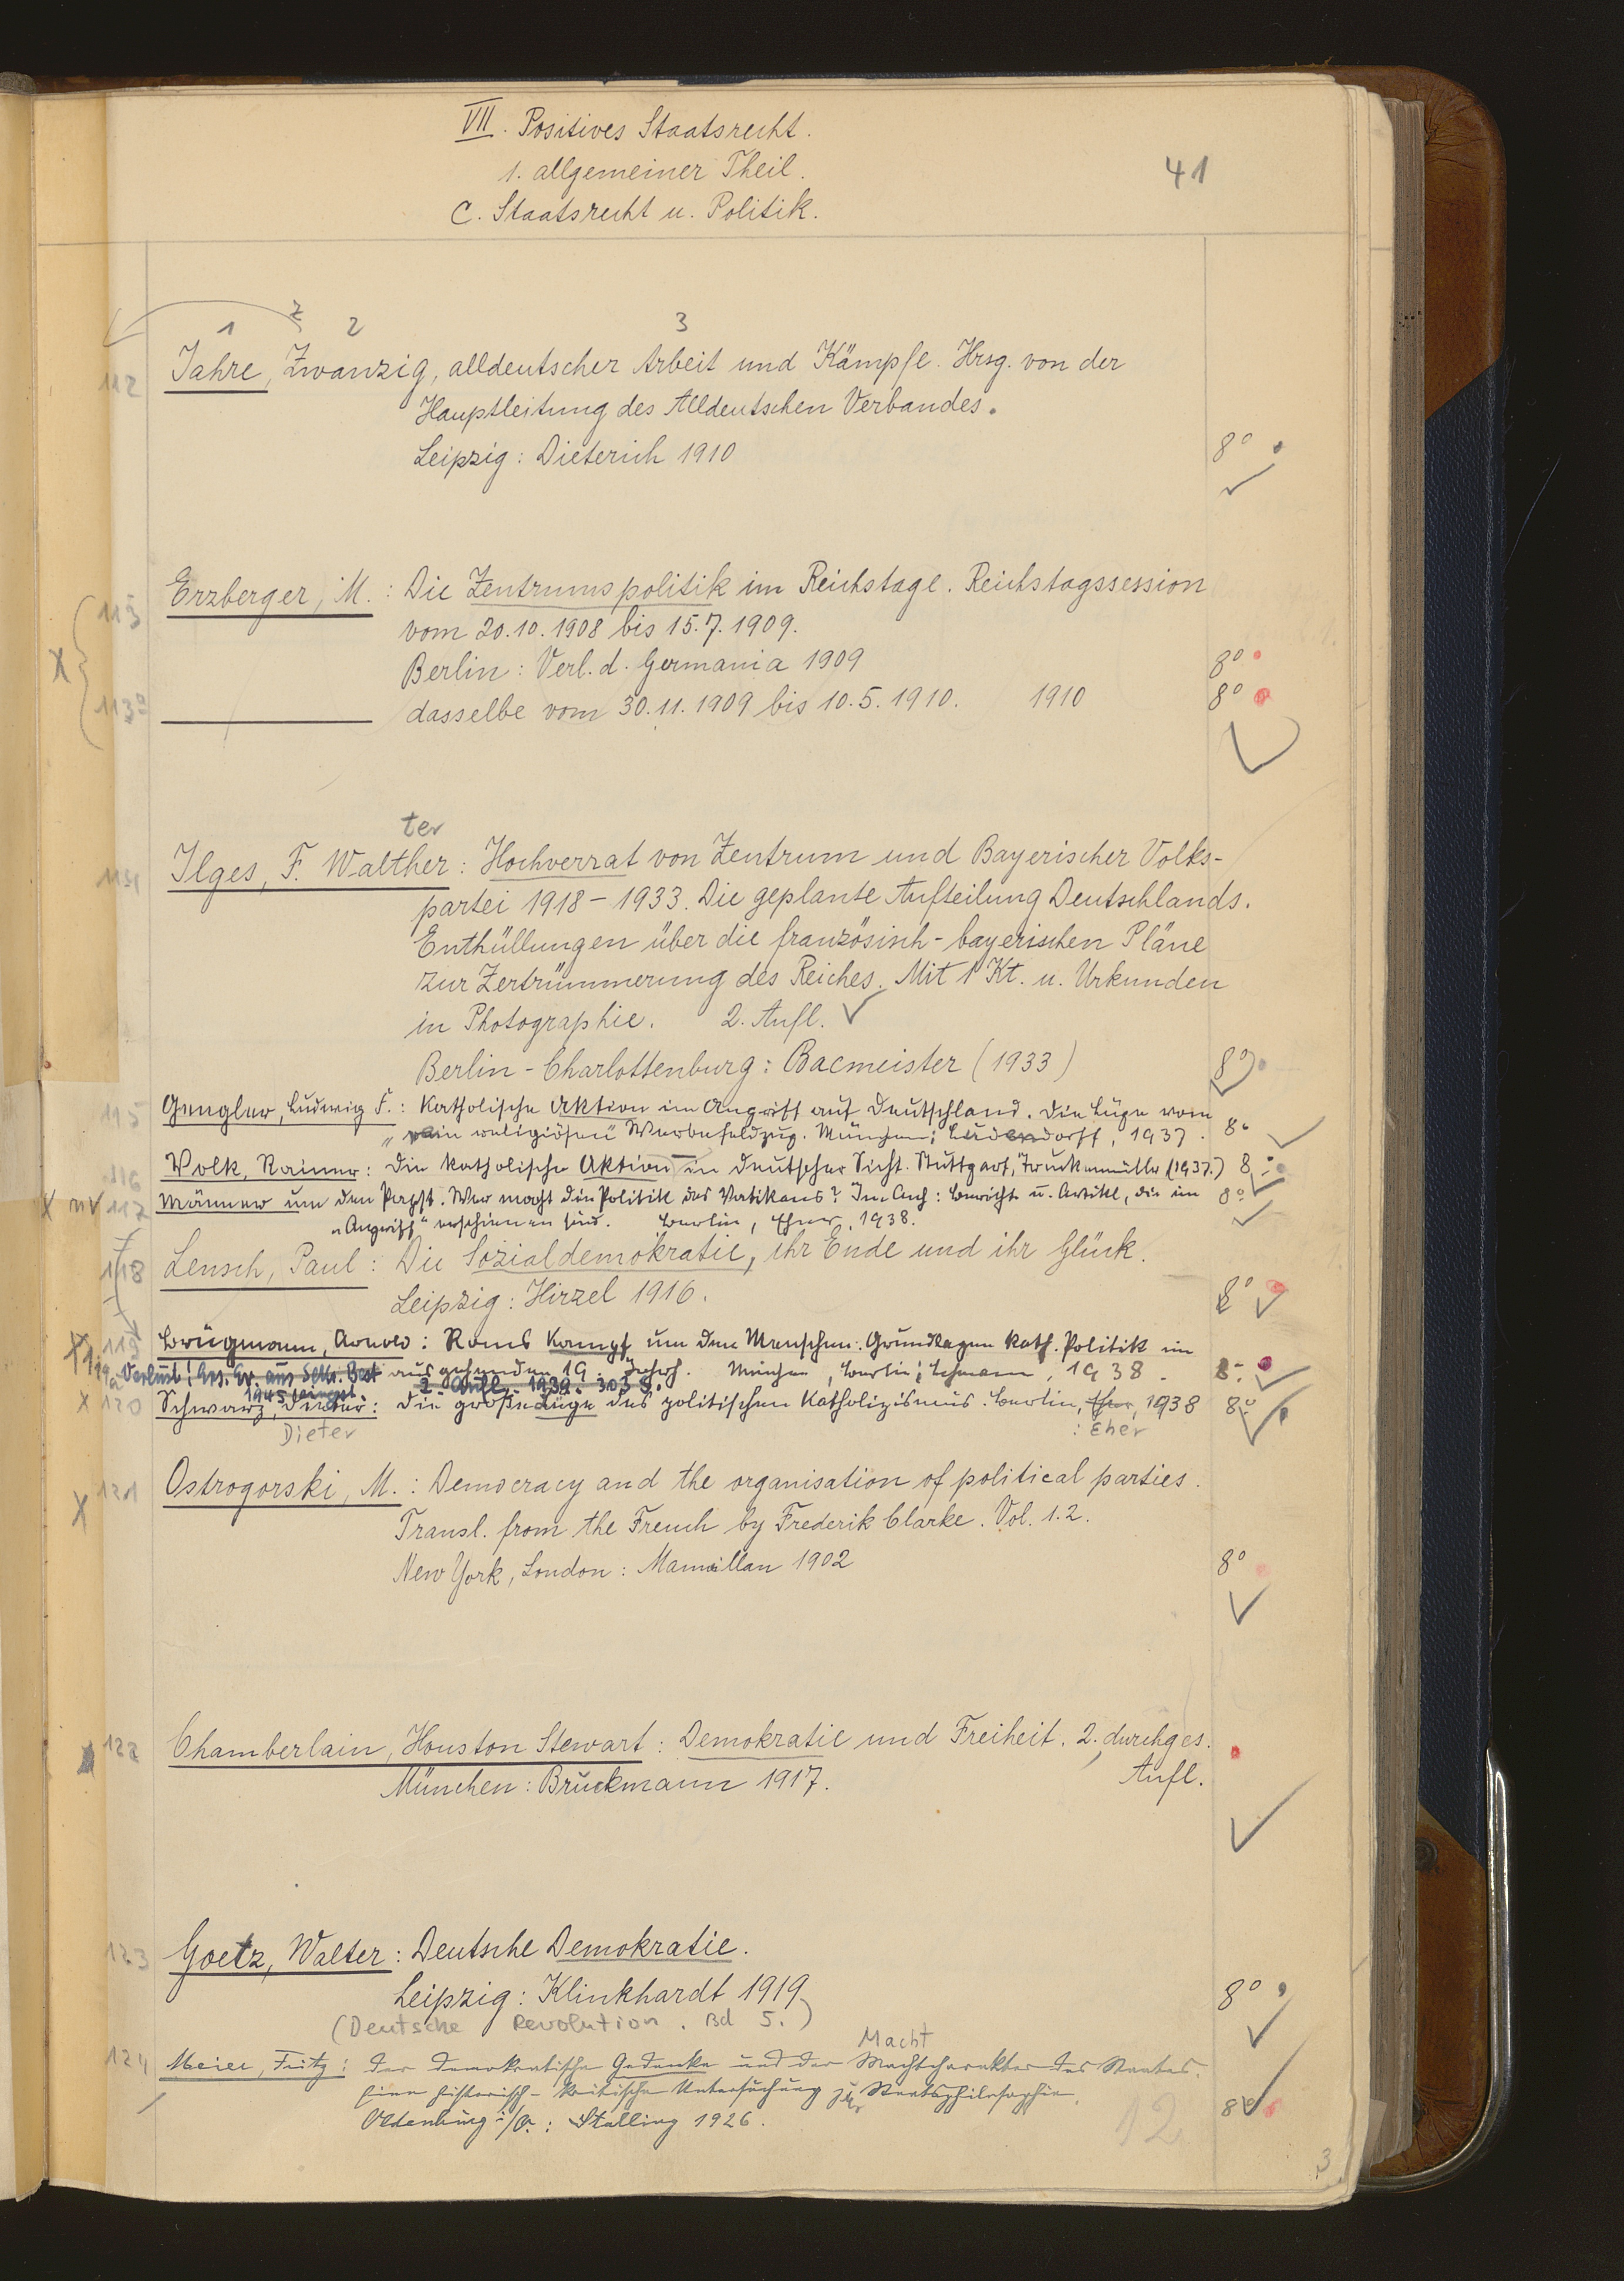 VII. Positives Staatsrecht.
1. allgemeiner Theil.
41
C. Staatsrecht u. Politik.
1 z 2 3
112 Jahre, Zwanzig, alldeutscher Arbeit und Kämpfe. Hrsg. von der
Hauptleitung des Alldeutschen Verbandes.
Leipzig: Dieterich 1910 8°
113 Erzberger, M.: Die Zentrumspolitik im Reichstage. Reichstagssession
vom 20.10.1908 bis 15.7.1909.
X Berlin: Verl. d. Germania 1909 8°
113a dasselbe vom 30.11.1909 bis 10.5.1910. 1910 8°
ter
114 Ilges, F. Walther: Hochverrat von Zentrum und Bayerischer Volks-
partei 1918-1933. Die geplante Aufteilung Deutschlands.
Enthüllungen über die französisch-bayerischen Pläne
zur Zertrümmerung des Reiches. Mit 1 Kt. u. Urkunden
in Photographie. 2. Aufl.
Berlin-Charlottenburg: Bacmeister (1933) 8°
115 Gengler, Ludwig F.: Katholische Aktion im Angriff auf Deutschland. Die Lüge vom
"rein religiösen" Werbefeldzug. München: Ludendorff, 1937. 8°
116 Volk, Rainer: Die katholische Aktion in deutscher Sicht. Stuttgart, Truckenmüller (1937.) 8°
X nv 117 Männer um den Papst. Wer macht die Politik des Vatikans? Im Anh: Bericht u. Artikel, die im 8°
"Angriff" erschienen sind. Berlin, Eher, 1938.
118 Lensch, Paul: Die Sozialdemokratie, ihr Ende und ihr Glück.
Leipzig: Hirzel 1916. 8°
X 119 Brügmann, Arnold: Roms Kampf um den Menschen. Grundlagen kath. Politik im
119a Verlust! Ers. Ex. aus Sekr. Best ausgehenden 19. Jahrh. München, Berlin: Lehmann, 1938. 8°
1945 2. Aufl. 1939. 303 S.
X 120 Schwarz, Dieter: Die große Lüge des politischen Katholizismus. Berlin, Eher, 1938 8°
Dieter : Eher
X 121 Ostrogorski, M.: Democracy and the organisation of political parties.
Transl. from the French by Frederik Clarke. Vol. 1.2.
New York, London: Macmillan 1902 8°
122 Chamberlain, Houston Stewart: Demokratie und Freiheit. 2. durchges.
Aufl.
München: Bruckmann 1917.
123 Goetz, Walter: Deutsche Demokratie.
Leipzig: Klinkhardt 1919. 8°
(Deutsche Revolution. Bd 5.)
Macht
124 Meier, Fritz: Der demokratische Gedanke und der Machtcharakter des Staates.
Eine historisch-kritische Untersuchung zur Staatsphilosophie.
Oldenburg i/O.: Stalling 1926. 8°
12
3